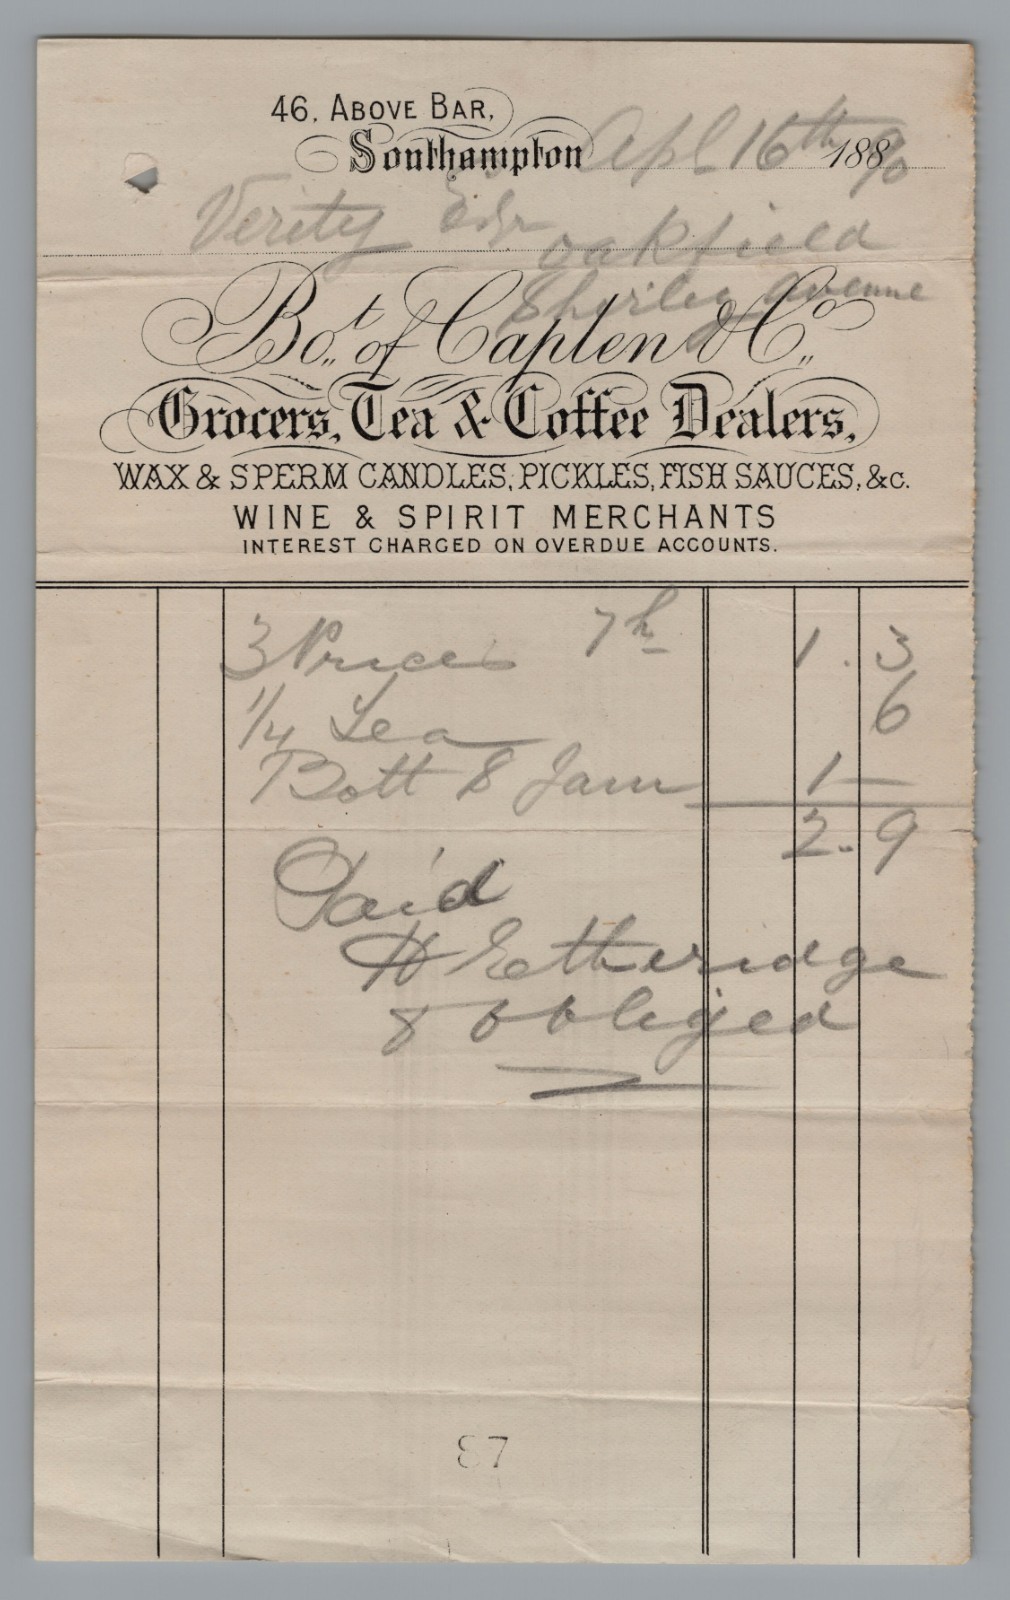 46, ABOVE BAR,
Southampton Apl 16th 1889/0
Verity Esqr Oakfield
Shirley Avenue
Bot. of Caplen & Co.,
Grocers, Tea & Coffee Dealers,
WAX & SPERM CANDLES, PICKLES, FISH SAUCES, &c.
WINE & SPIRIT MERCHANTS
INTEREST CHARGED ON OVERDUE ACCOUNTS.
3 Prices 1 . 3
1/4 Tea 6
Bott Jam 1 —
2 . 9
Paid
H Etheridge
& obliged
87